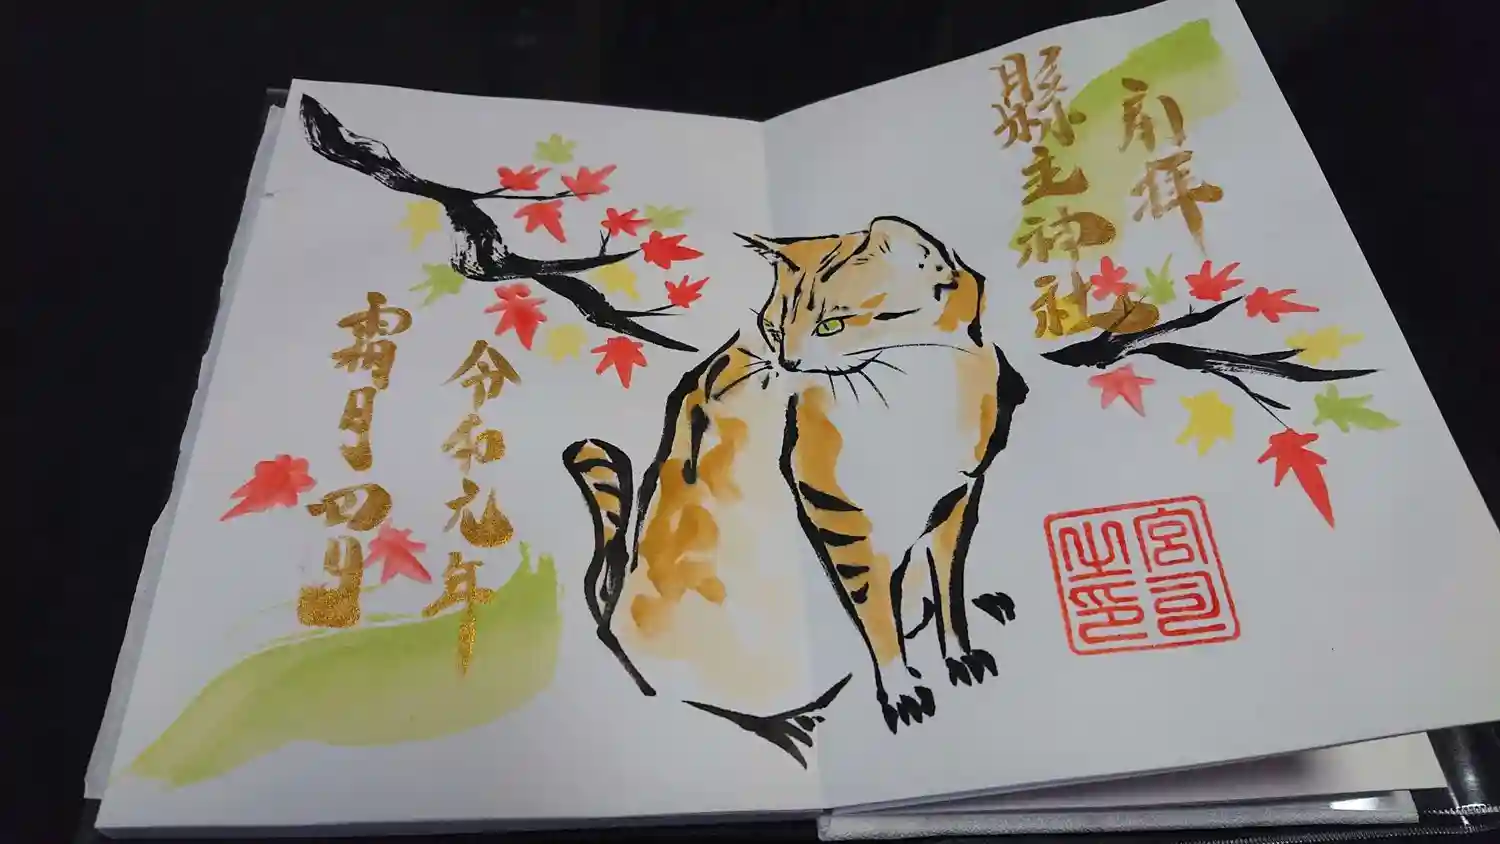 拝
縣主神社
宮司之印
令和元年
霜月四日